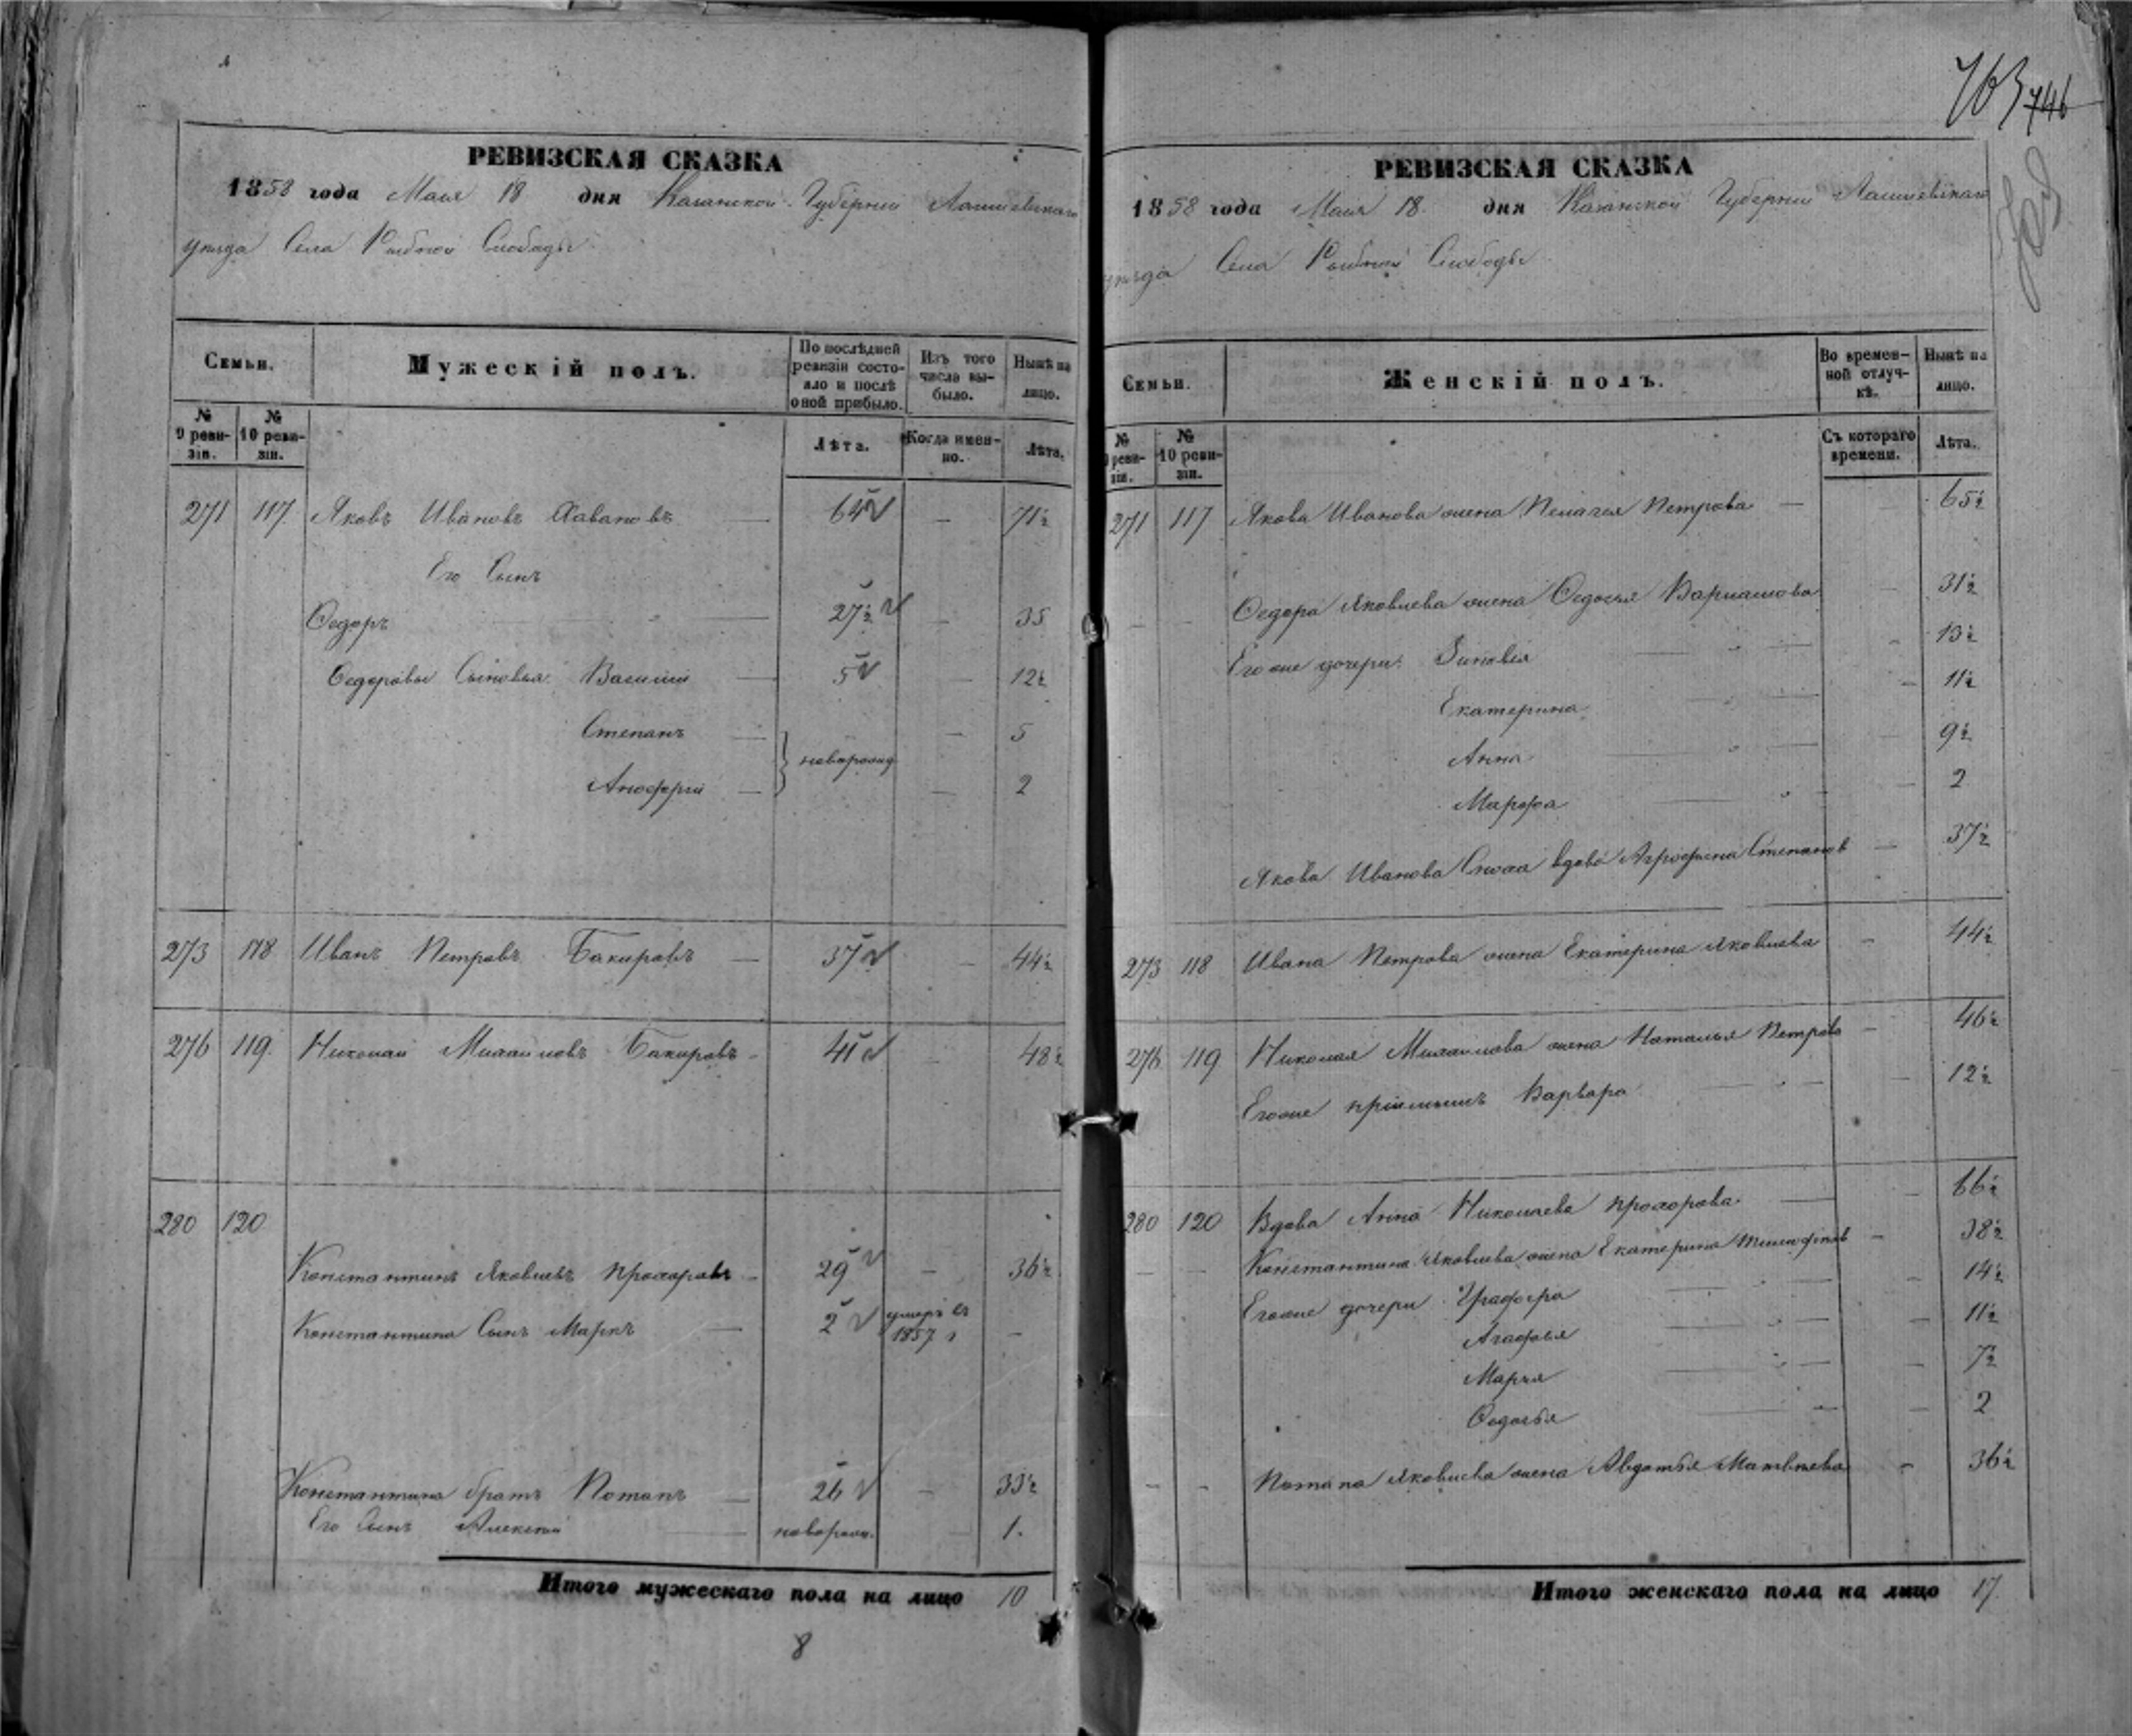 763 746
РЕВИЗСКАЯ СКАЗКА
1858 года Маия 18 дня Казанской Губерніи Лаишевскаго
уѣзда Села Рыбной Слободы
Семьи.
Мужескій полъ.
По послѣдней ревизіи состояло и послѣ оной прибыло.
Изъ того числа выбыло.
Нынѣ на лицо.
№ 9 ревизіи.
№ 10 ревизіи.
Лѣта.
Когда именно.
Лѣта.
271 117 Яковъ Ивановъ 64 — 71½
Его Сынъ
Ѳедоръ 27½ — 35
Ѳедоровы Сыновья Василій 5 — 12½
Степанъ — 5
новорожд
Аноффрій — 2
273 118 Иванъ Петровъ Бакировъ — 37 — 44½
276 119 Николай Михайловъ Бакировъ 41 — 48½
280 120
Константинъ Яковлевъ Прохоровъ 29 — 36½
Константина Сынъ Маркъ — 2 умеръ въ 1857 —
Константина братъ Потапъ — 26 — 33½
Его Сынъ Алексей новорож. — 1.
Итого мужескаго пола на лицо 10
8
РЕВИЗСКАЯ СКАЗКА
1858 года Маия 18 дня Казанской Губерніи Лаишевскаго
уѣзда Села Рыбной Слободы
Семьи.
Женскій полъ.
Во временной отлучкѣ.
Нынѣ на лицо.
№ 9 ревизіи.
№ 10 ревизіи.
Съ котораго времени.
Лѣта.
271 117 Якова Иванова жена Пелагея Петрова — 65½
Ѳедора Яковлева жена Ѳедосья Варламова — 31½
Егоже дочери: Зиновія — 13½
Екатерина — 11½
Анна — 9½
Марфа — 2
Якова Иванова Сноха вдова Агрофена Степанов — 37½
273 118 Ивана Петрова жена Екатерина Яковлева — 44½
276 119 Николая Михайлова жена Наталья Петрова — 46½
Егоже пріемышъ Варвара — 12½
280 120 Вдова Анна Николаева Прохорова — 66½
Константина Яковлева жена Екатерина — 38½
Егоже дочери — 14½
Агафья — 11½
Марья — 7½
Ѳедосья — 2
Потапа Яковлева жена Авдотья Матвѣева — 36½
Итого женскаго пола на лицо 17